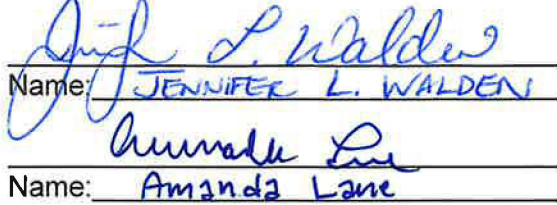 Jennifer L. Walden
Name: JENNIFER L. WALDEN
Amanda Lane
Name: Amanda Lane